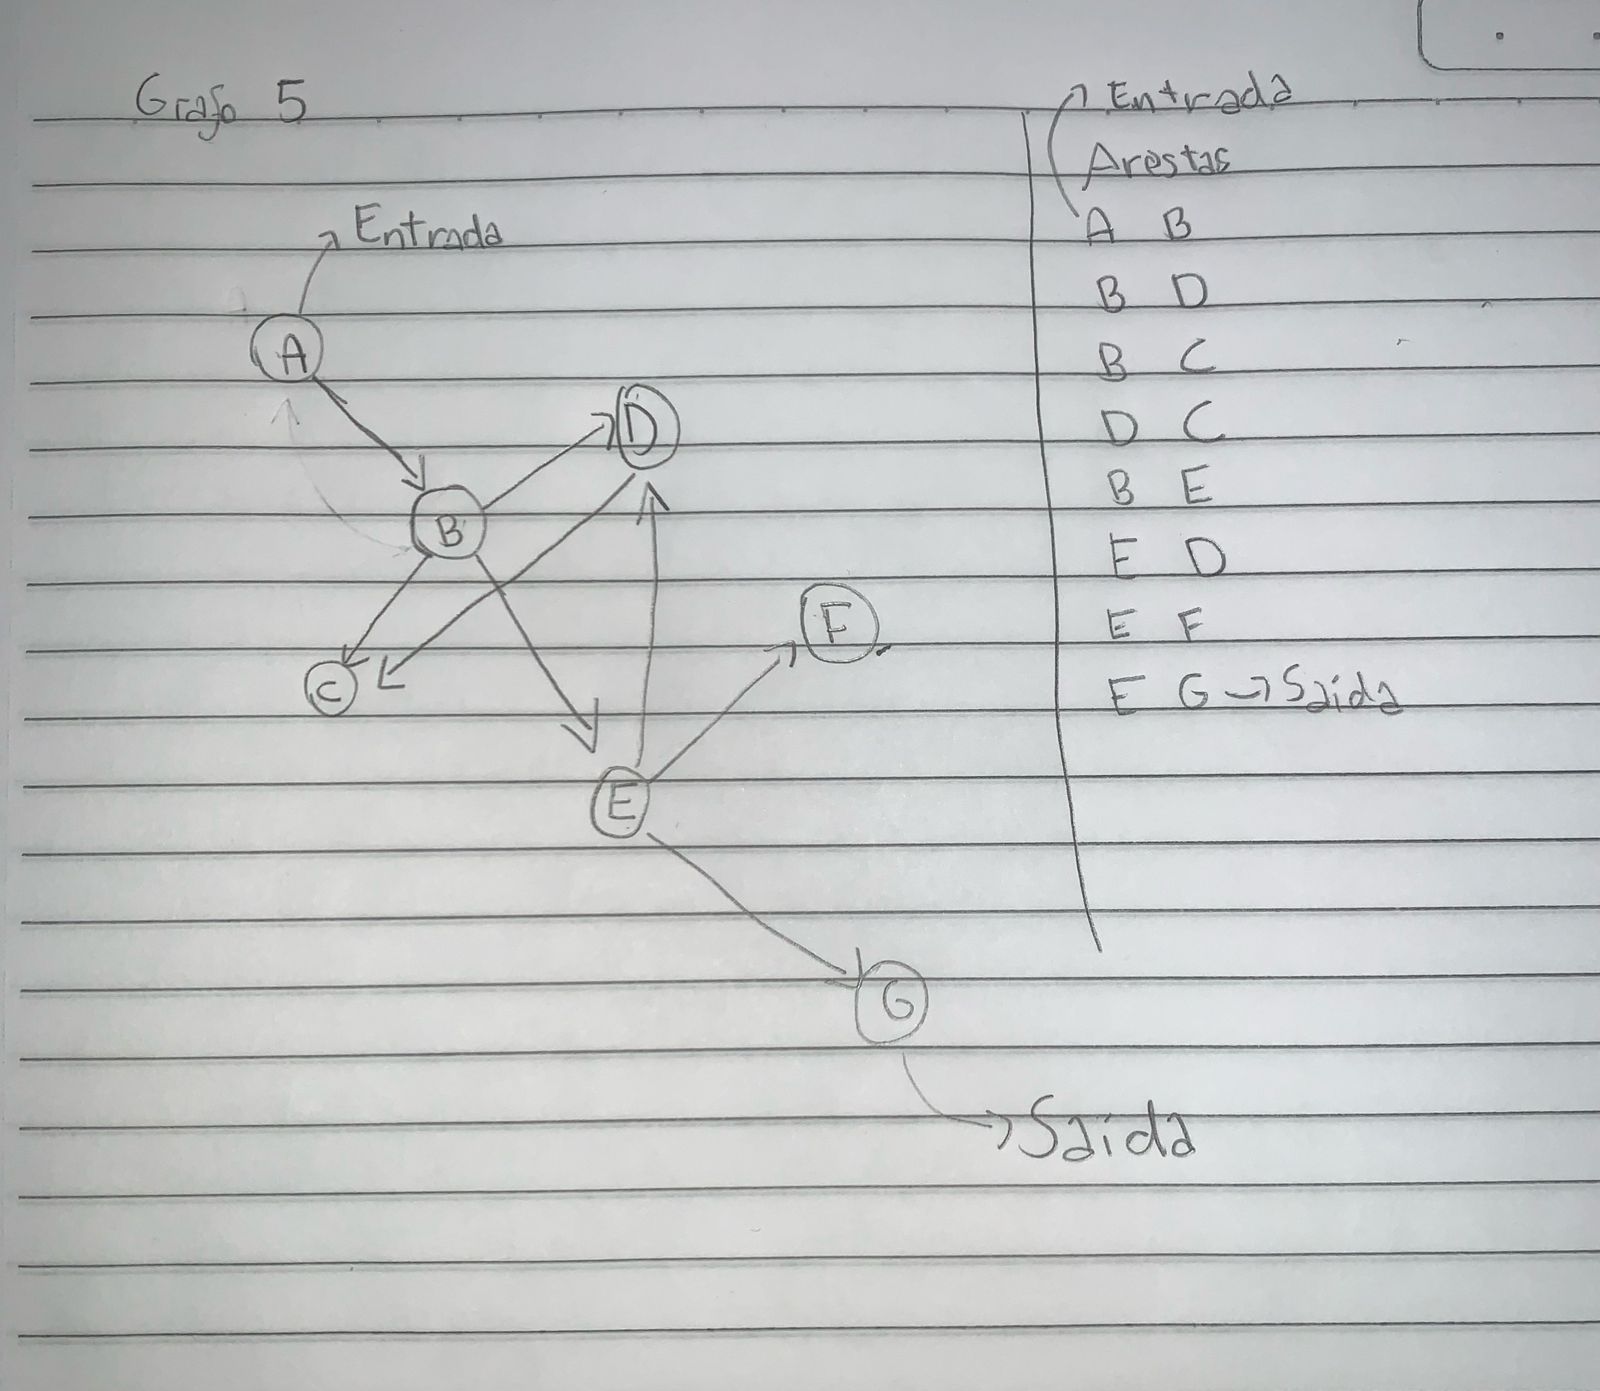 Grafo 5
Entrada
A
D
B
F
C
E
G
Saida
Entrada
Arestas
A B
B D
B C
D C
B E
E D
E F
E G → Saida